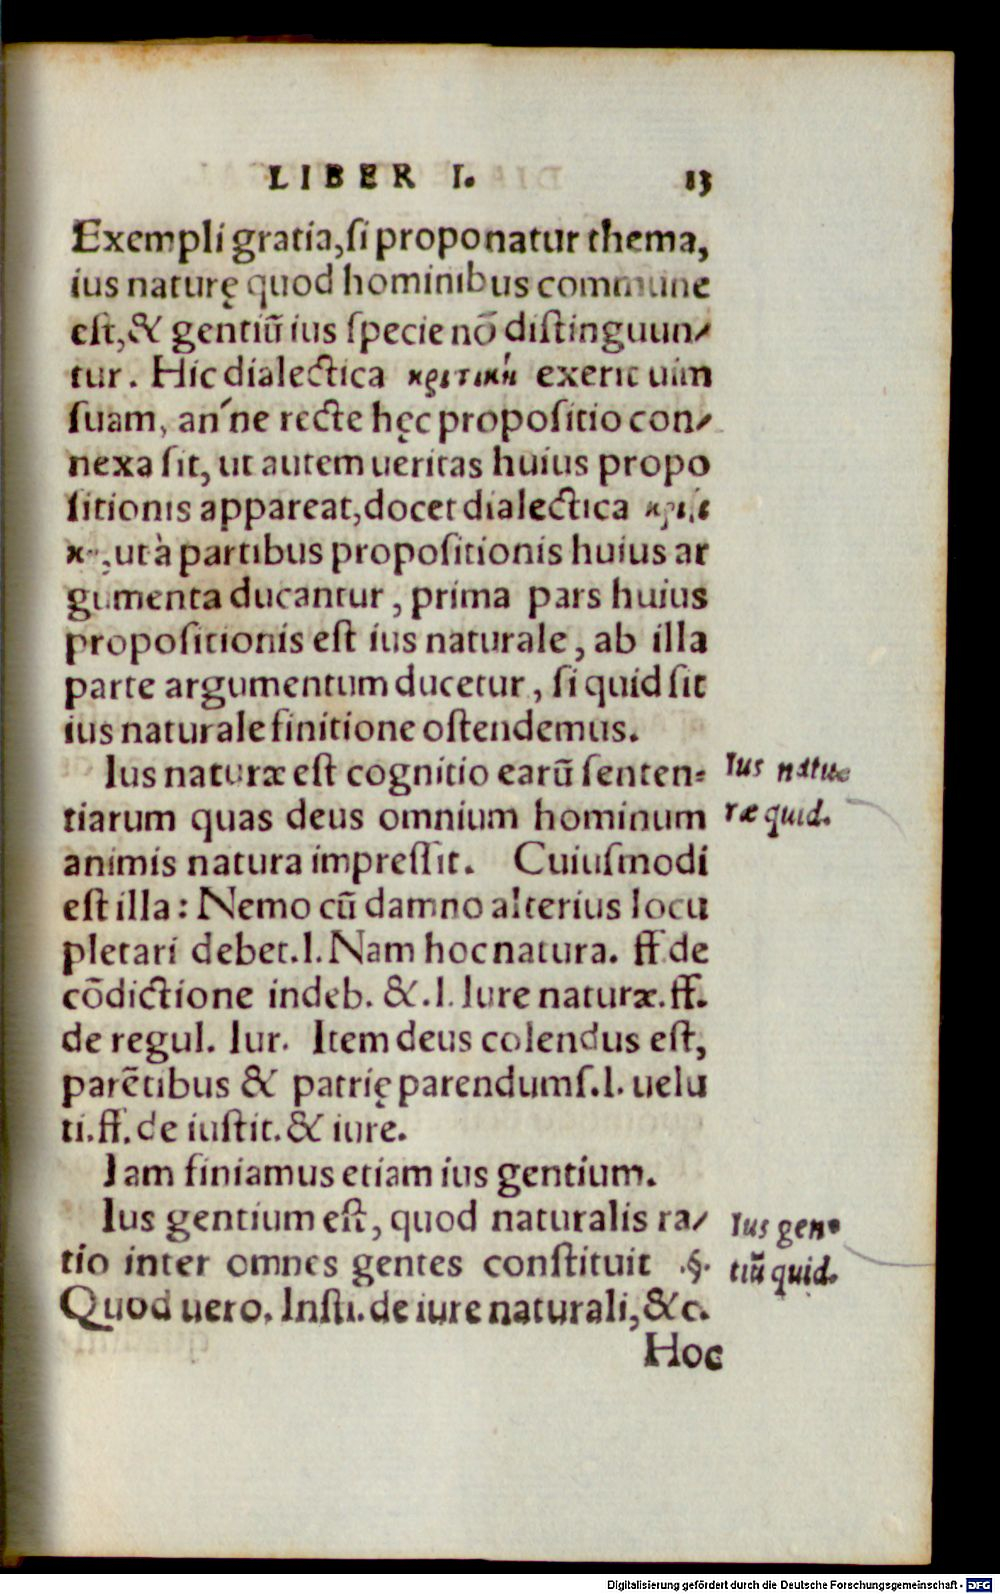 LIBER I. 13
Exempli gratia, si proponatur thema,
ius naturę quod hominibus commune
est, & gentiũ ius specie nõ distinguun-
tur. Hic dialectica κριτικὴ exerit uim
suam, an'ne recte hęc propositio con-
nexa sit, ut autem ueritas huius propo
sitionis appareat, docet dialectica
ut à partibus propositionis huius ar
gumenta ducantur, prima pars huius
propositionis est ius naturale, ab illa
parte argumentum ducetur, si quid sit
ius naturale finitione ostendemus.
Ius naturæ est cognitio earũ senten=
tiarum quas deus omnium hominum
animis natura impressit. Cuiusmodi
est illa: Nemo cũ damno alterius locu
pletari debet. l. Nam hoc natura. ff. de
cõdictione indeb. &. l. Iure naturæ. ff.
de regul. Iur. Item deus colendus est,
parẽtibus & patrię parendum s. l. uelu
ti. ff. de iustit. & iure.
Iam finiamus etiam ius gentium.
Ius gentium est, quod naturalis ra-
tio inter omnes gentes constituit .§.
Quod uero. Insti. de iure naturali, &c.
Hoc
Ius natu=
ræ quid.
Ius gen=
tiũ quid.
Digitalisierung gefördert durch die Deutsche Forschungsgemeinschaft - DFG